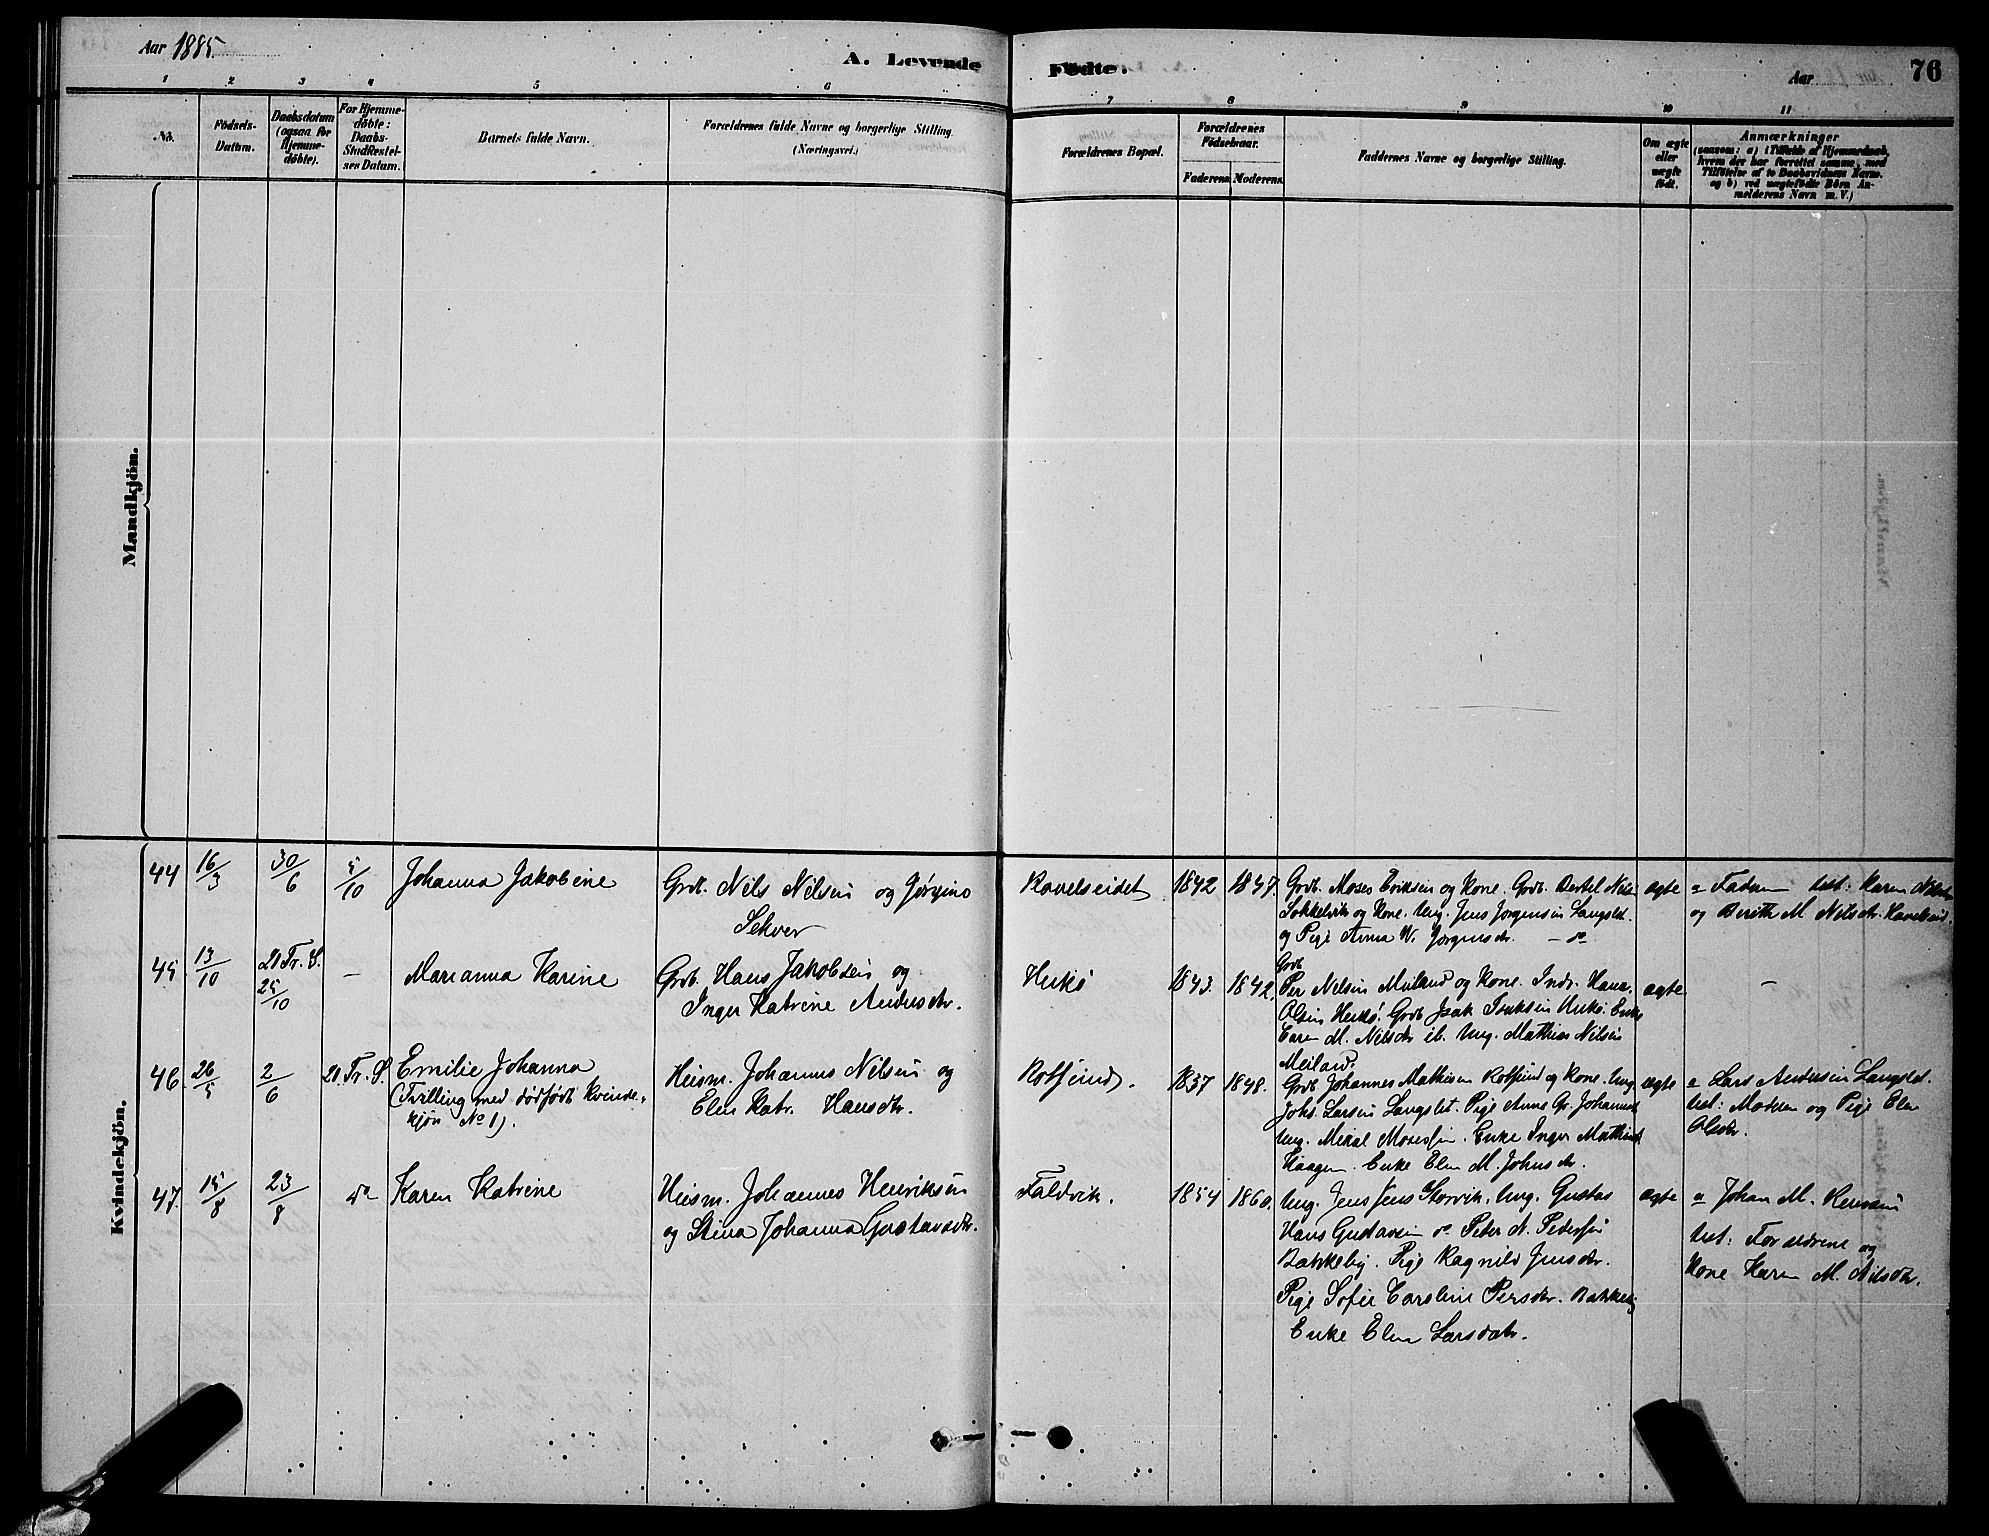 Aar 1885.
A. Levende
Födte.
Aar
76
1 2 3 4 5 6 7 8 9 10 11
No.
Födsels-
Datum.
Daabsdatum
(ogsaa for
Hjemme-
döbte).
For Hjemme-
döbte:
Daabs-
Stadfæstel-
ses Datum.
Barnets fulde Navn.
Forældrenes fulde Navne og borgerlige Stilling
(Næringsvei.)
Forældrenes Bopæl.
Forældrenes
Födselsaar.
Faderens
Moderens
Faddernes Navne og borgerlige Stilling.
Om ægte
eller
uægte
födt.
Anmærkninger
(saasom: a) i Tilfælde af Hjemmedaab,
hvem der har forrettet samme, med
Tilföielse af to Daabsvidners Navne.
og b) ved uægtefödte Börn An-
melderens Navn m. V.)
Mandkjön.
Kvindekjön.
44
16/3
30/6
5/10
Johanna Jakobine
Grdb. Nils Nilsen og Jørgine
Sehver
Ravelseidet
1842
1847.
Grdb. Moses Eriksen og Kone. Grdb. Bertel Nils
Sokkelvik og Kone. Ung. Jens Jørgensen Langslet.
og Pige Anna W. Jørgensdr. — do
ægte
a Faderen test: Karen Nilsdr
og Berith M. Nilsdr.
45.
13/10
21 Tr. S.
25/10
—
Marianna Karine
Grdb. Hans Jakobsen og
Inger Katrine Andersdr.
Hukø
1843.
1842.
Grdb
Per Nilsen Meiland og Kone. Indr. Hans
Olsen Hukø. Grdb Isak Isaksen Hukø. Enke
Caren M. Nilsdr ib. Ung. Mathias Nilsen
Meiland.
ægte.
—
46.
26/5
2/6
21. Tr. S.
Emilie Johanna
(Tvilling med dødfødt Kvinde-
kjön No 1).
Huusm. Johannes Nilsen og
Elen Katr. Hansdr.
Rotsund.
1837
1848.
Grdb Johannes Mathisen Rotsund og Kone. Ung.
Johs. Larsen Langslet. Pige Anne Gr. Johannesd
Ung. Mikal Mosessen. Enke Inger Mathisd
Haagen. Enke Elen M. Johnsdr.
ægte
a Lars Andersen Langslet.
test: Moderen og Pige Elen
Olsdr.
47.
15/8
23/8
do
Karen Katrine
Huusm. Johannes Henriksen
og Stina Johanna Gustavsdr.
Faldvik.
1854
1860.
Ung. Jens Jens Storvik. Ung. Gustav
Hans Gustavsen do Peder N. Pedersen
Bakkeby. Pige Ragnild Jensdr.
Pige Sofie Caroline Persdr. Bakkeby
Enke Elen Larsdatr.
ægte
a Johan M. Hansen
test: Forældrene og
Kone Karen M. Nilsdr.